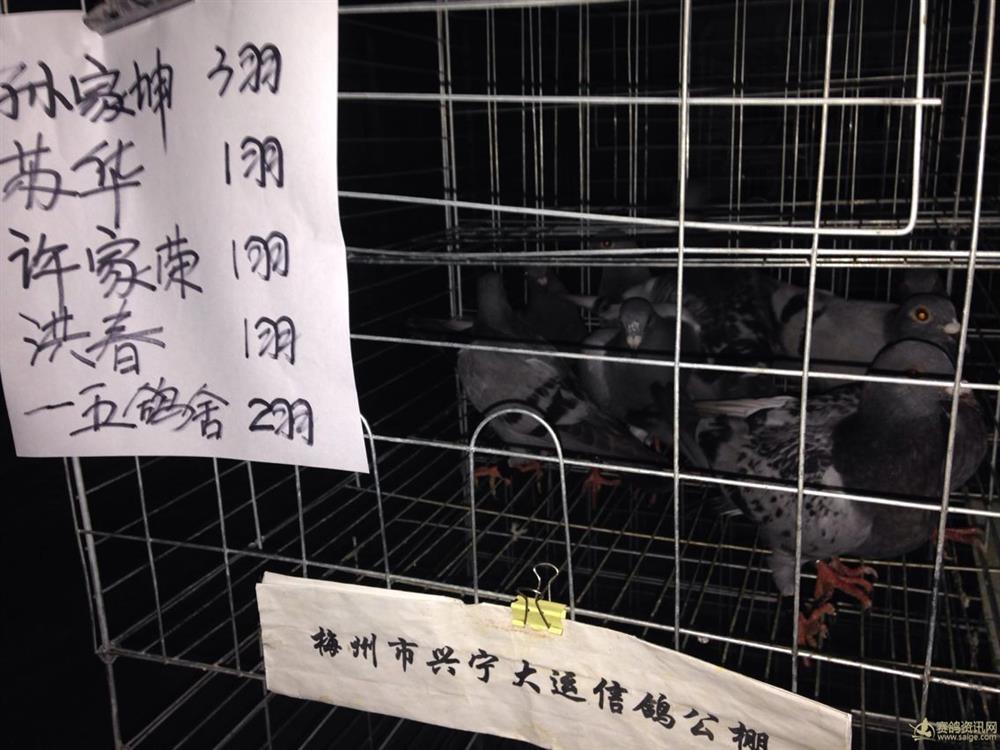 孙家坤 3羽
苏华 1羽
许家荣 1羽
洪春 1羽
一五鸽舍 2羽
梅州市兴宁大运信鸽公棚
赛鸽资讯网
www.saige.com